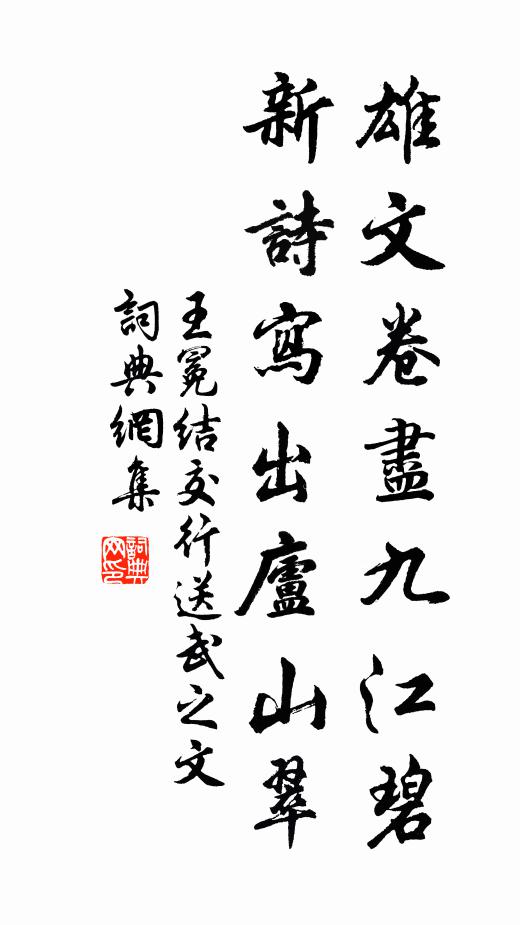 雄文卷盡九江碧
新詩寫出廬山翠
王冕結交行送武之文
詞典網集
詞典网印